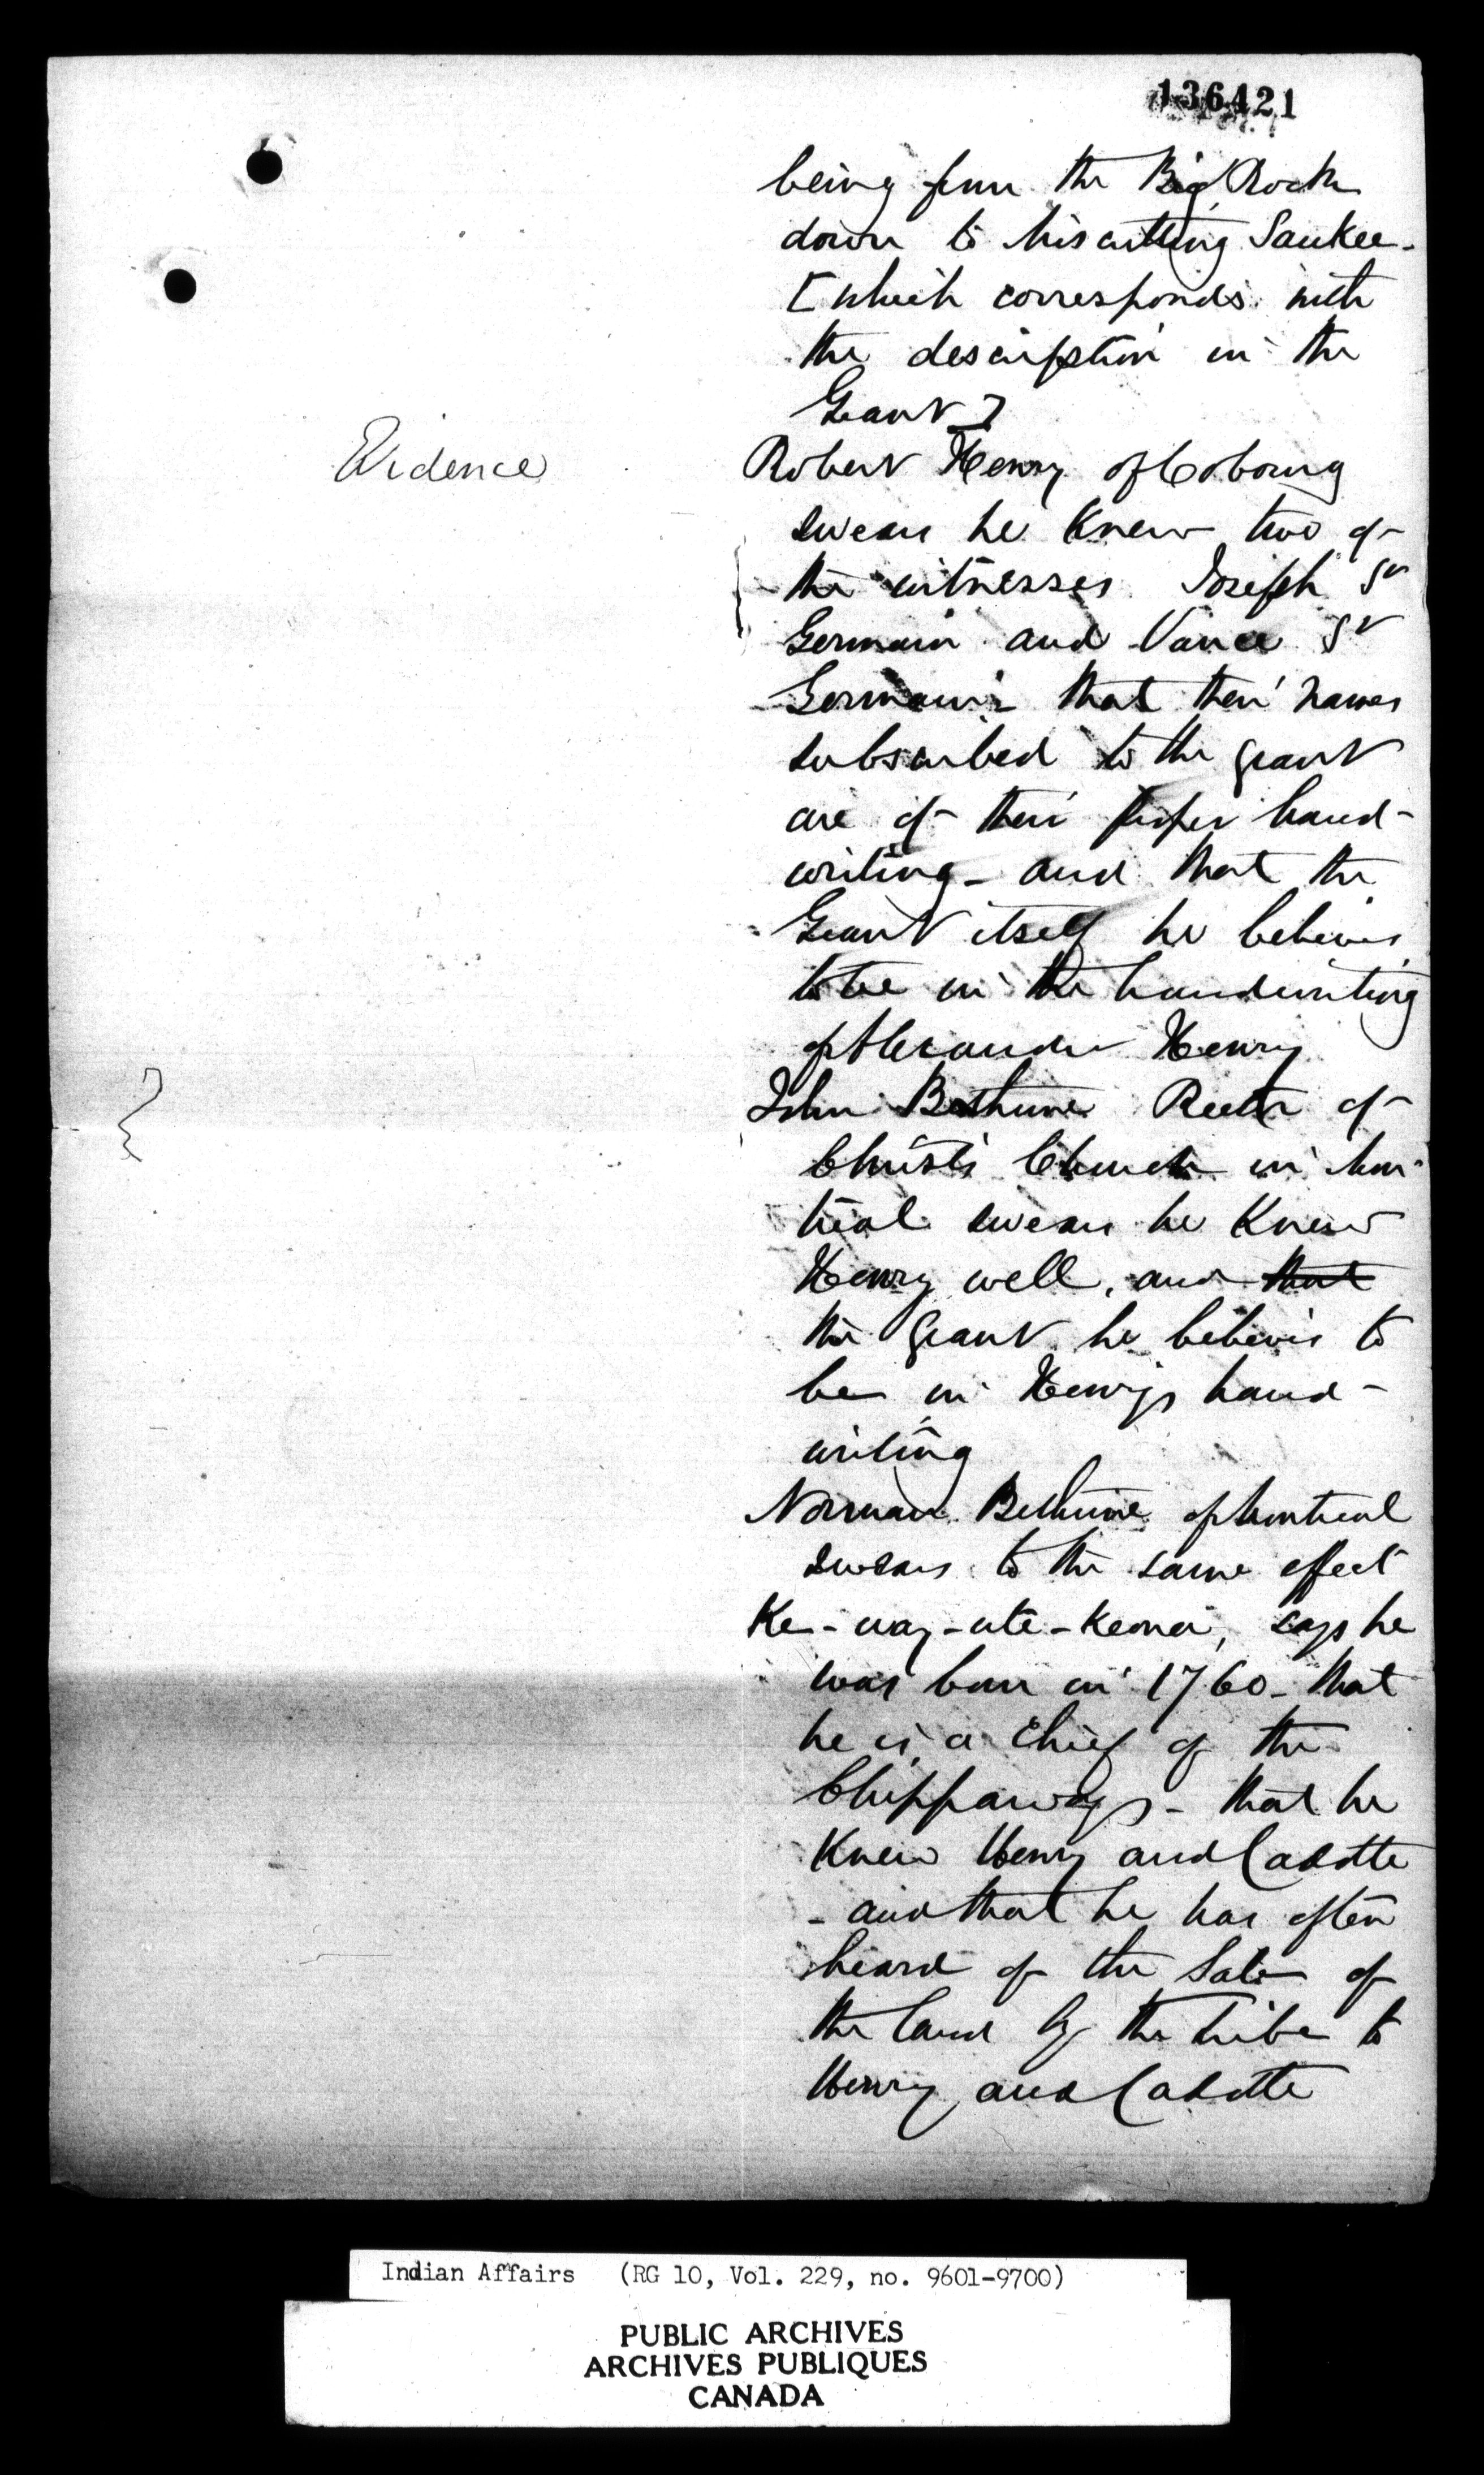 136421
being from the Big Rock
down to Miscutting Saukee.
[which corresponds with
the description in the
Grant]
Evidence
Robert Henry of Cobourg
swears he knew two of
the witnesses Joseph St
Germain and Vance St
Germain that their names
subscribed to the grant
are of their proper hand-
writing - and that the
Grant itself he believes
to be in the handwriting
of Alexander Henry
John Bethune Rector of
Christ's Church in Mon-
treal swears he knew
Henry well, and that
the Grant he believes to
be in Henry's hand-
writing
Norman Bethune of Montreal
swears to the same effect
Ke-way-ute- says he
was born in 1760 - that
he is a Chief of the
Chippaways - that he
knew Henry and Cadotte
- and that he has often
heard of the sale of
the land by the tribe to
Henry and Cadotte
Indian Affairs (RG 10, Vol. 229, no. 9601-9700)
PUBLIC ARCHIVES
ARCHIVES PUBLIQUES
CANADA